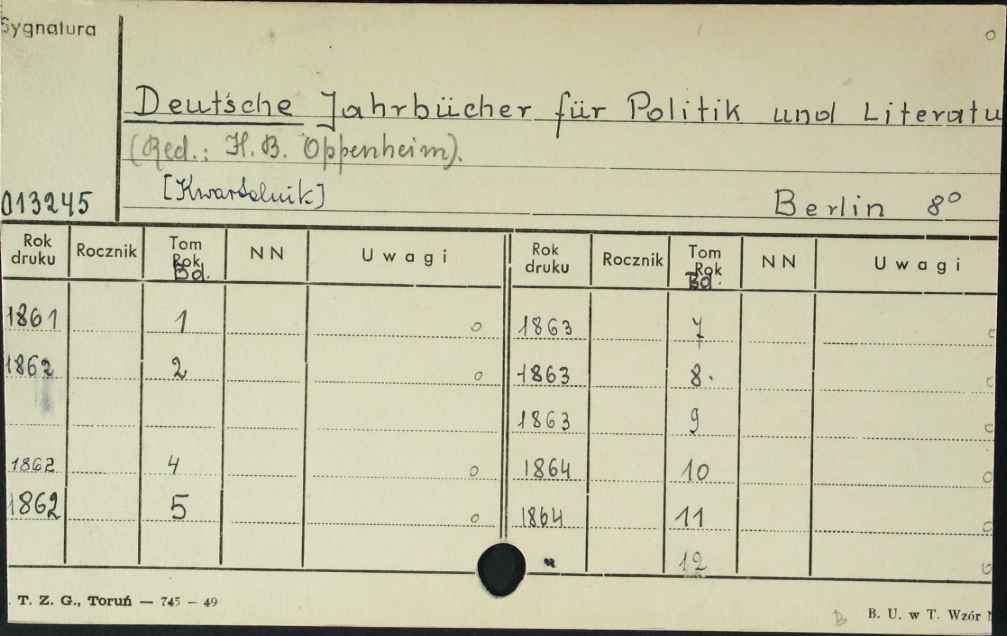 Sygnatura
Deutsche Jahrbücher für Politik und Literatu
(Red.: H. B. Oppenheim).
[Kwartalnik]
013245
Berlin 8º
Rok druku Rocznik Tom Rok Bd. NN Uwagi Rok druku Rocznik Tom Rok Bd. NN Uwagi
1861 1 o 1863 7 o
1862 2 o 1863 8. o
1863 9 o
1862 4 o 1864 10 o
1862 5 o 1864 11 o
" 12 o
T. Z. G., Toruń — 745 — 49
B. U. w T. Wzór